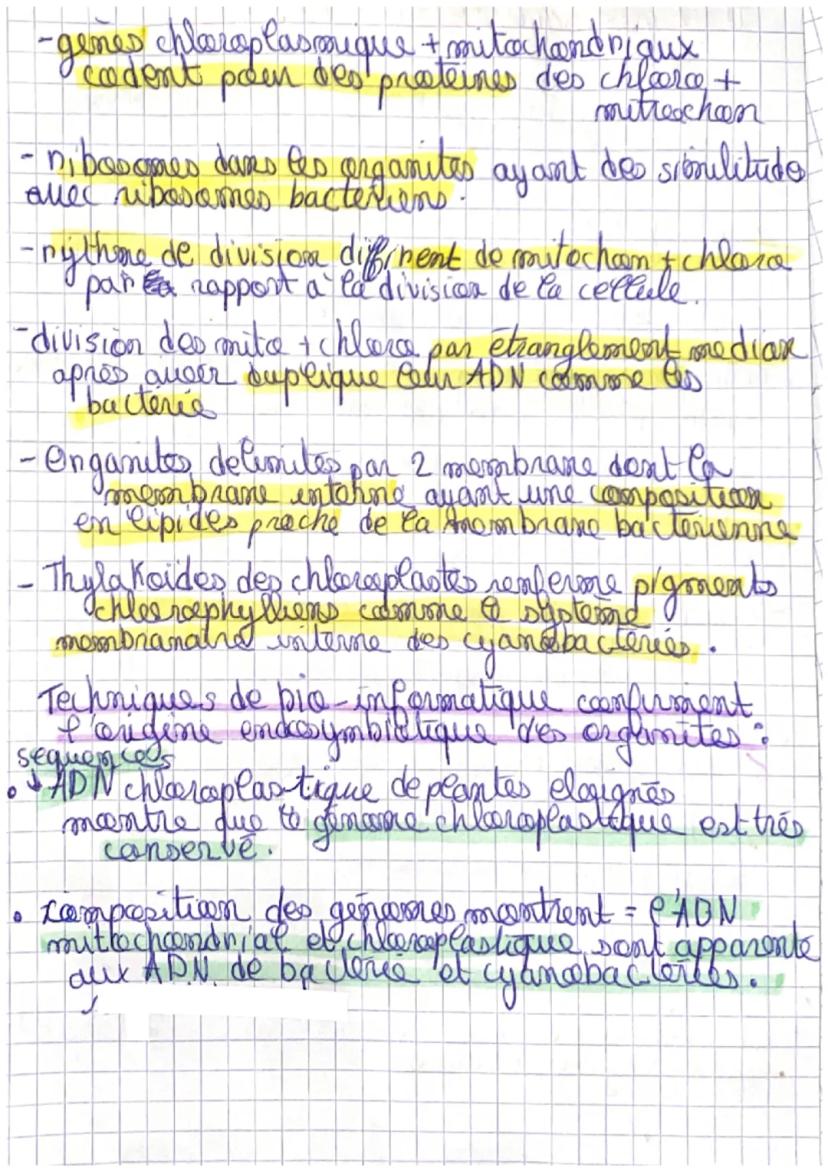 - gènes chloroplasmique + mitochondriaux
codent pour des protéines des chloro +
mitrochon
- ribosomes dans les organites ayant des similitudes
avec ribosomes bacteriens.
- rythme de division différent de mitochon + chloro
par rapport à la division de la cellule.
- division des mito + chloro par étranglement median
après avoir duplique leur ADN comme les
bacterie
- Organites delimités par 2 membrane dont la
membrane interne ayant une composition
en lipides proche de la membrane bacterienne
- Thylakoides des chloroplastes renferme pigments
chlorophylliens comme le système
membranaire interne des cyanobacteries.
Techniques de bio-informatique confirment
l'origine endosymbiotique des organites :
séquences
• ↓ ADN chloroplastique de plantes eloignés
montre que le génome chloroplastique est très
conservé.
• composition des génomes montrent = l'ADN
mittochondrial et chloroplastique sont apparenté
aux ADN de bacterie et cyanobacteries.